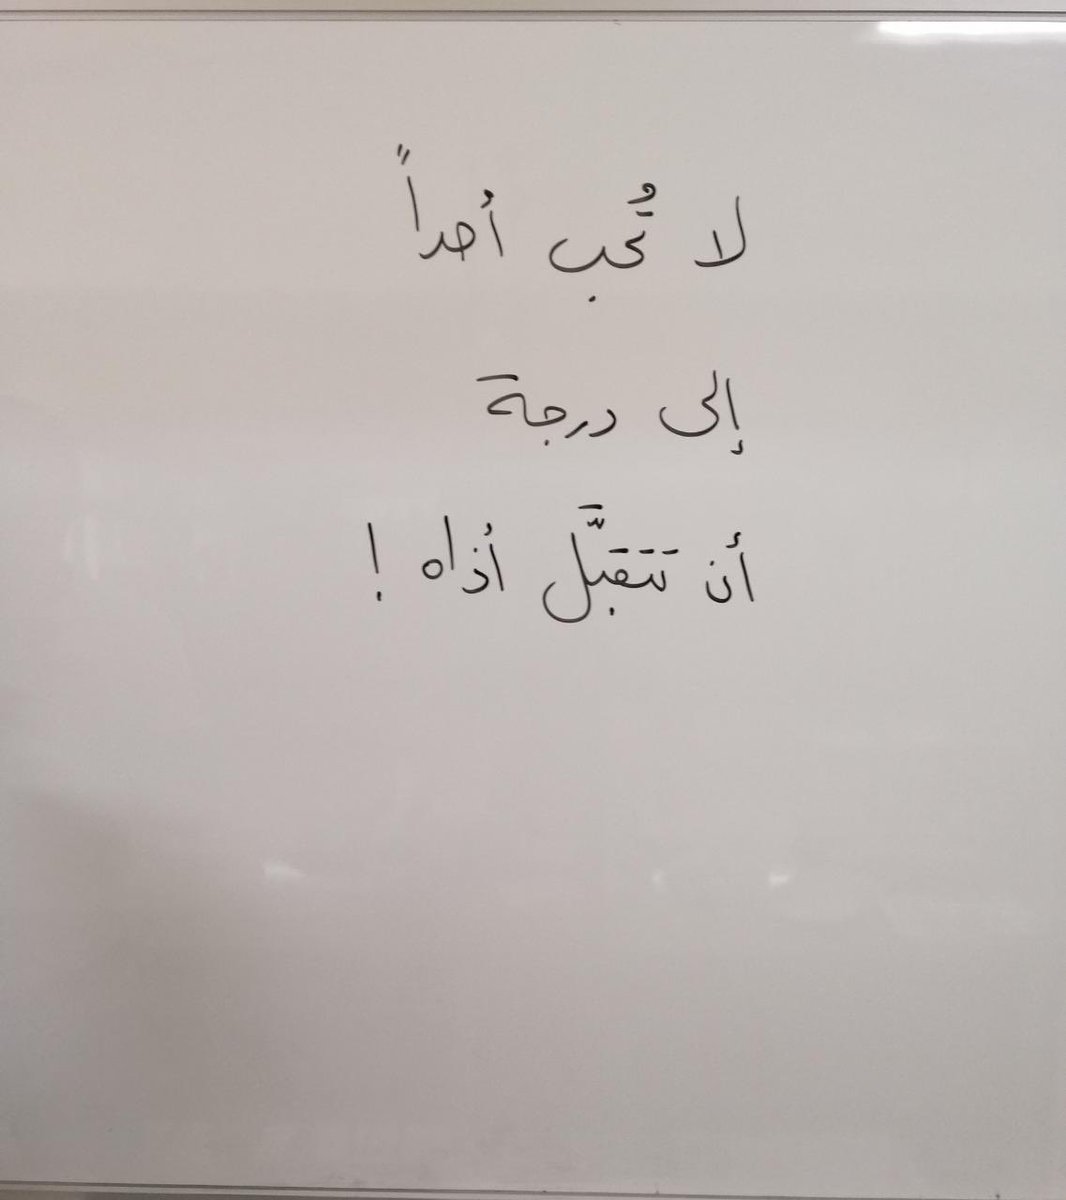 لا تُحب أحداً
إلى درجة
أن تتقبَّل أذاه !